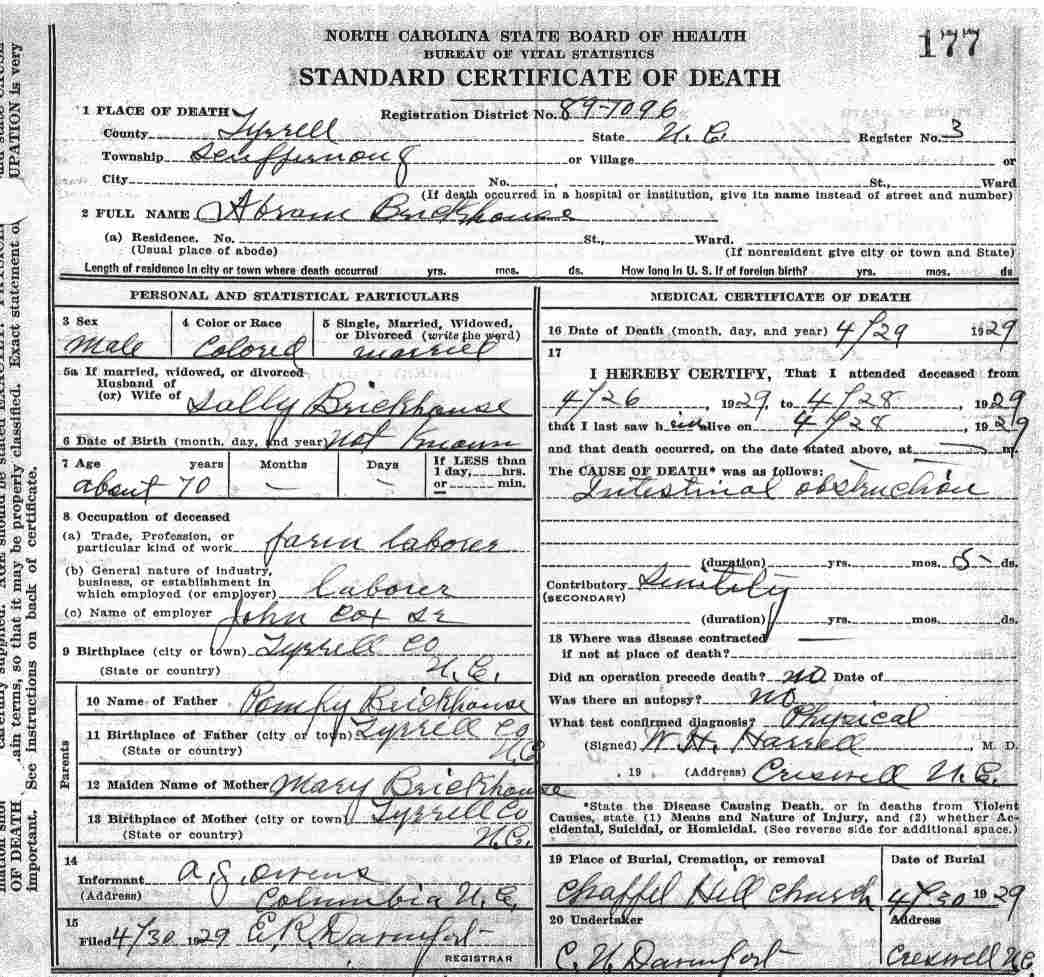 NORTH CAROLINA STATE BOARD OF HEALTH
BUREAU OF VITAL STATISTICS
STANDARD CERTIFICATE OF DEATH
177
1 PLACE OF DEATH
Registration District No. 89-7096
County Tyrrell State N.C. Register No. 3
Township Scuppernong or Village or
City No. , St., Ward
(If death occurred in a hospital or institution, give its name instead of street and number)
2 FULL NAME Abram Brickhouse
(a) Residence. No. St., Ward.
(Usual place of abode) (If nonresident give city or town and State)
Length of residence in city or town where death occurred yrs. mos. ds. How long in U. S. if of foreign birth? yrs. mos. ds
PERSONAL AND STATISTICAL PARTICULARS
3 Sex
Male
4 Color or Race
Colored
5 Single, Married, Widowed,
or Divorced (write the word)
married
5a If married, widowed, or divorced
Husband of
(or) Wife of Sally Brickhouse
6 Date of Birth (month, day, and year) Not Known
7 Age years Months Days If LESS than
1 day, hrs.
or min.
about 70 – –
8 Occupation of deceased
(a) Trade, Profession, or
particular kind of work farm laborer
(b) General nature of industry,
business, or establishment in
which employed (or employer) laborer
(c) Name of employer John Cox Sr
9 Birthplace (city or town) Tyrrell Co
(State or country) N.C.
Parents
10 Name of Father Brickhouse
11 Birthplace of Father (city or town) Tyrrell Co
(State or country) N.C
12 Maiden Name of Mother Mary Brickhouse
13 Birthplace of Mother (city or town) Tyrrell Co
(State or country) N.C.
14
Informant Owens
(Address) Columbia N.C.
15
Filed 4/30 1929 E.R. Davenport
REGISTRAR
MEDICAL CERTIFICATE OF DEATH
16 Date of Death (month, day, and year) 4/29 1929
17
I HEREBY CERTIFY, That I attended deceased from
4/26, 1929, to 4/28, 1929
that I last saw him alive on 4/28, 1929
and that death occurred, on the date stated above, at m.
The CAUSE OF DEATH* was as follows:
Intestinal obstruction
(duration) yrs. mos. 5 ds.
Contributory
(SECONDARY)
(duration) yrs. mos. ds.
18 Where was disease contracted
if not at place of death?
Did an operation precede death? no Date of
Was there an autopsy? no
What test confirmed diagnosis? Physical
(Signed) W. H. Harrell, M. D.
, 19 (Address) Creswell N.C.
*State the Disease Causing Death, or in deaths from Violent
Causes, state (1) Means and Nature of Injury, and (2) whether Ac-
cidental, Suicidal, or Homicidal. (See reverse side for additional space.)
19 Place of Burial, Cremation, or removal
Chappel Hill church
Date of Burial
4/30 1929
20 Undertaker
Davenport
Address
Creswell N.C.
UPATION is very
Exact statement of
AGE should be stated EXACTLY
so that it may be properly classified.
OF DEATH
ain terms,
important. See instructions on back of certificate.